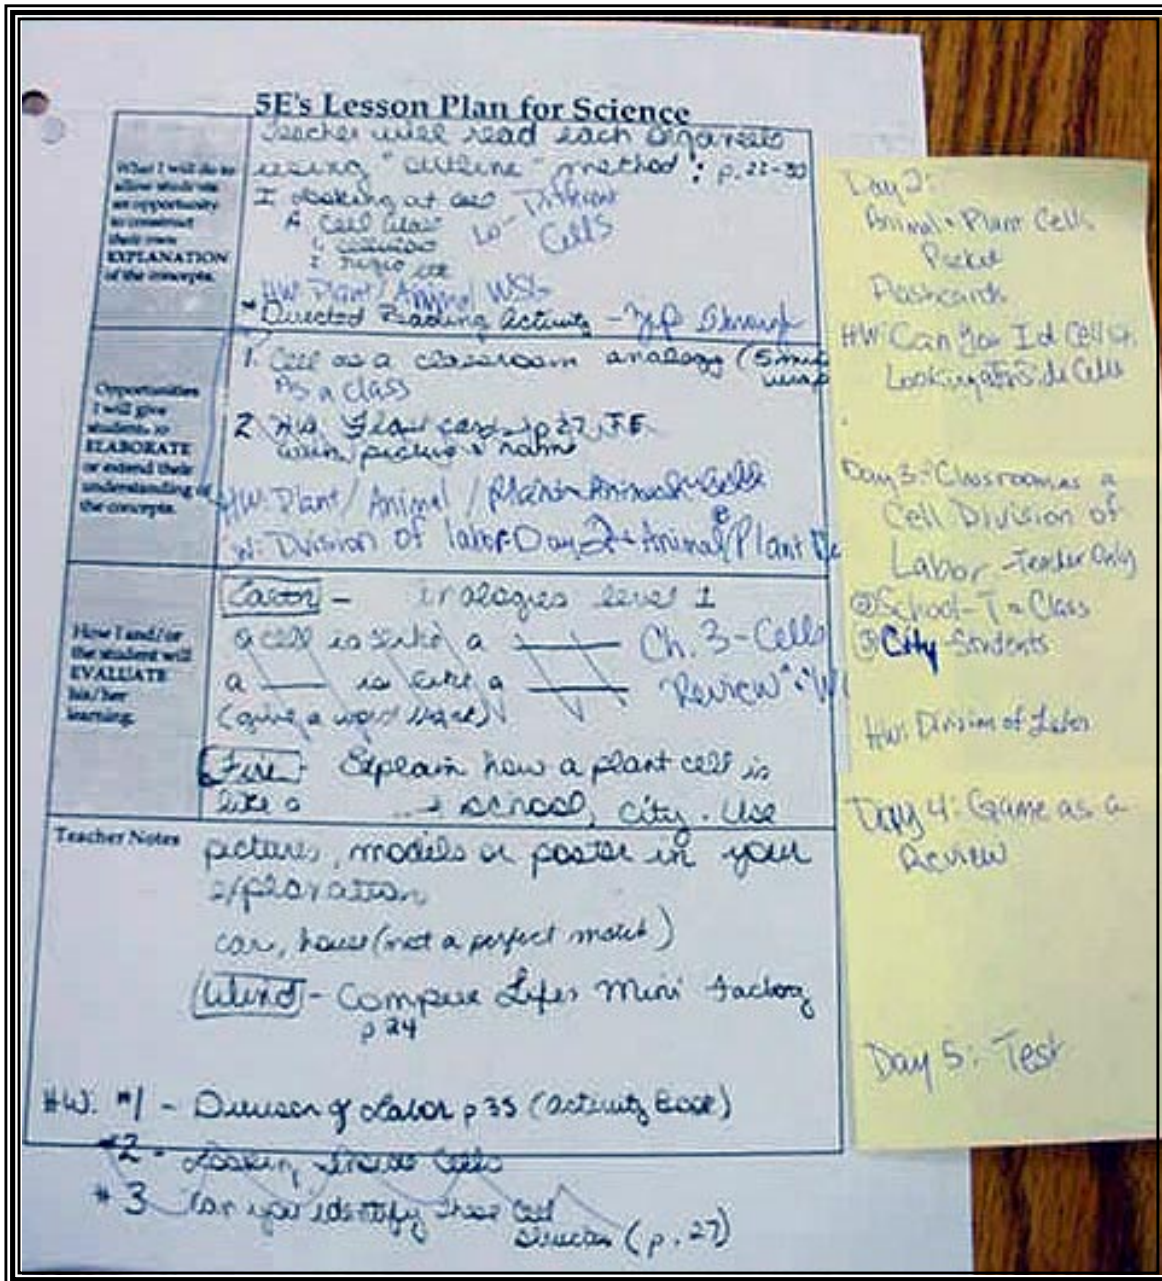 5E's Lesson Plan for Science
What I will do to
allow students
an opportunity
to construct
their own
EXPLANATION
of the concepts.
Teacher will read each
using "outline" method: p. 22-30
I looking at cell Different
A Cell Cells
1.
2.
HW: Plant/Animal WS
*Directed Reading Activity -
Opportunities
I will give
students to
ELABORATE
or extend their
understanding of
the concepts.
1. Cell as a classroom analogy (5 min
As a class
wrap
2 p 27, T.E.
with picture & name
HW: Plant/Animal/
W: Division of labor Day 2 + Animal/Plant
How I and/or
the student will
EVALUATE
his/her
learning.
Earth - analogies level 1
a cell is like a ____ Ch. 3-Cells
a ____ is like a ____ Review
(give a word bank)
Fire - Explain how a plant cell is
like a school, city. Use
Teacher Notes
pictures, models or poster in your
explanation
car, house (not a perfect match)
Wind - Compare Lifes Mini factory
p 24
HW: #1 - Division of Labor p 35 (activity Book)
#2 - Looking Inside Cells
#3 Can you identify these Cell
(p. 27)
Day 2:
Animal + Plant Cells
Packet
Flashcards
HW: Can You Id Cell
Looking at Inside Cells
Day 3: Classroom as a
Cell Division of
Labor - Teacher Only
② School - T + Class
③ City - Students
HW: Division of Labor
Day 4: Game as a
Review
Day 5: Test